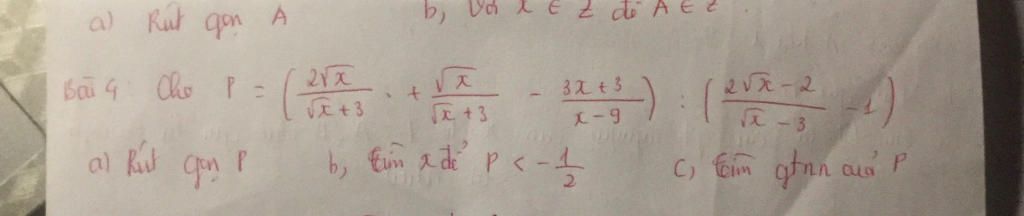 a) Rút gọn A b, Với x ∈ Z để A ∈ Z.
Bài 4: Cho P = (2√x/(√x+3) + √x/(√x+3) - (3x+3)/(x-9)) : ((2√x-2)/(√x-3) - 1)
a) Rút gọn P b, tìm x để P < -1/2 c, tìm gtnn của P